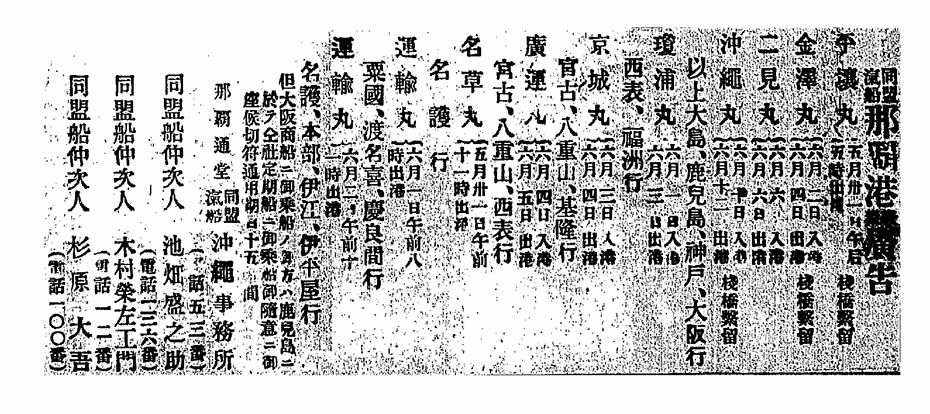 同盟
汽船
那覇港發廣告
平壤丸
五月卅一日午后
五時出帆
桟橋繋留
金澤丸
六月 日入港
六月四日出港
桟橋繋留
二見丸
六月六 入港
六月六日出港
沖繩丸
六月 日入港
六月十二 出港
桟橋繋留
以上大島、鹿兒島、神戸、大阪行
瓊浦丸
六月 日入港
六月三日出港
西表、福洲行
京城丸
六月三日入港
六月四日出港
宮古、八重山、基隆行
廣運丸
六月四日入港
六月五日出港
宮古、八重山、西表行
名草丸
五月卅一日午前
十一時出港
名護行
運輸丸
六月一日午前八
時出港
粟國、渡名喜、慶良間行
運輸丸
六月二日午前十
一時出港
名護、本部、伊江、伊平屋行
但大阪商船ニ御乗船ノ御方ハ鹿兒島ニ
於テ仝社定期船ニ御乗船御随意ニ御
座候切符通用期日十五日間
那覇通堂
同盟
汽船
沖繩事務所
(電話五三番)
同盟船仲次人 池畑盛之助
(電話一三六番)
同盟船仲次人 木村榮左工門
(電話一二番)
同盟船仲次人 杉原大吾
(電話一〇〇番)